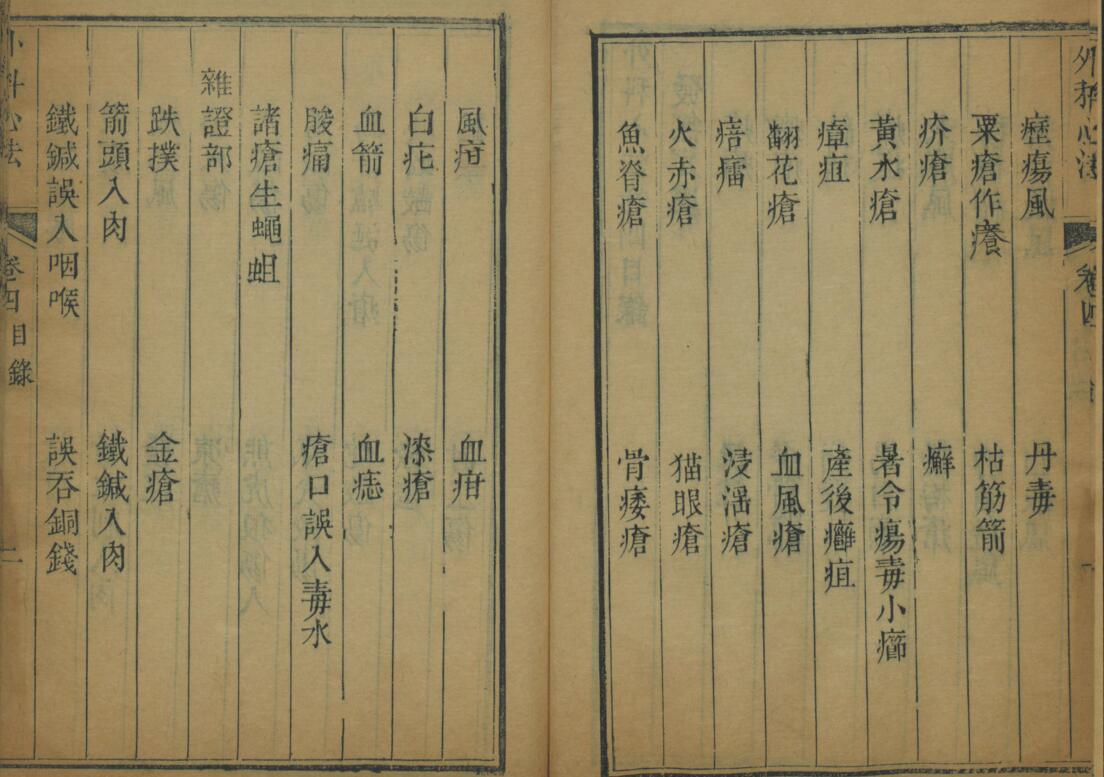 外科心法 卷四
癧瘍風 丹毒
粟瘡作癢 枯筋箭
疥瘡 癬
黃水瘡 暑令瘍毒小癤
瘴疽 產後癰疽
翻花瘡 血風瘡
㾦癗 浸淫瘡
火赤瘡 猫眼瘡
魚脊瘡 骨痿瘡
風疳 血疳
白疕 漆瘡
血箭 血痣
朘痛 瘡口誤入毒水
諸瘡生蠅蛆
雜證部
跌撲 金瘡
箭頭入肉 鐵鍼入肉
鐵鍼誤入咽喉 誤吞銅錢
外科心法 卷四目錄 二